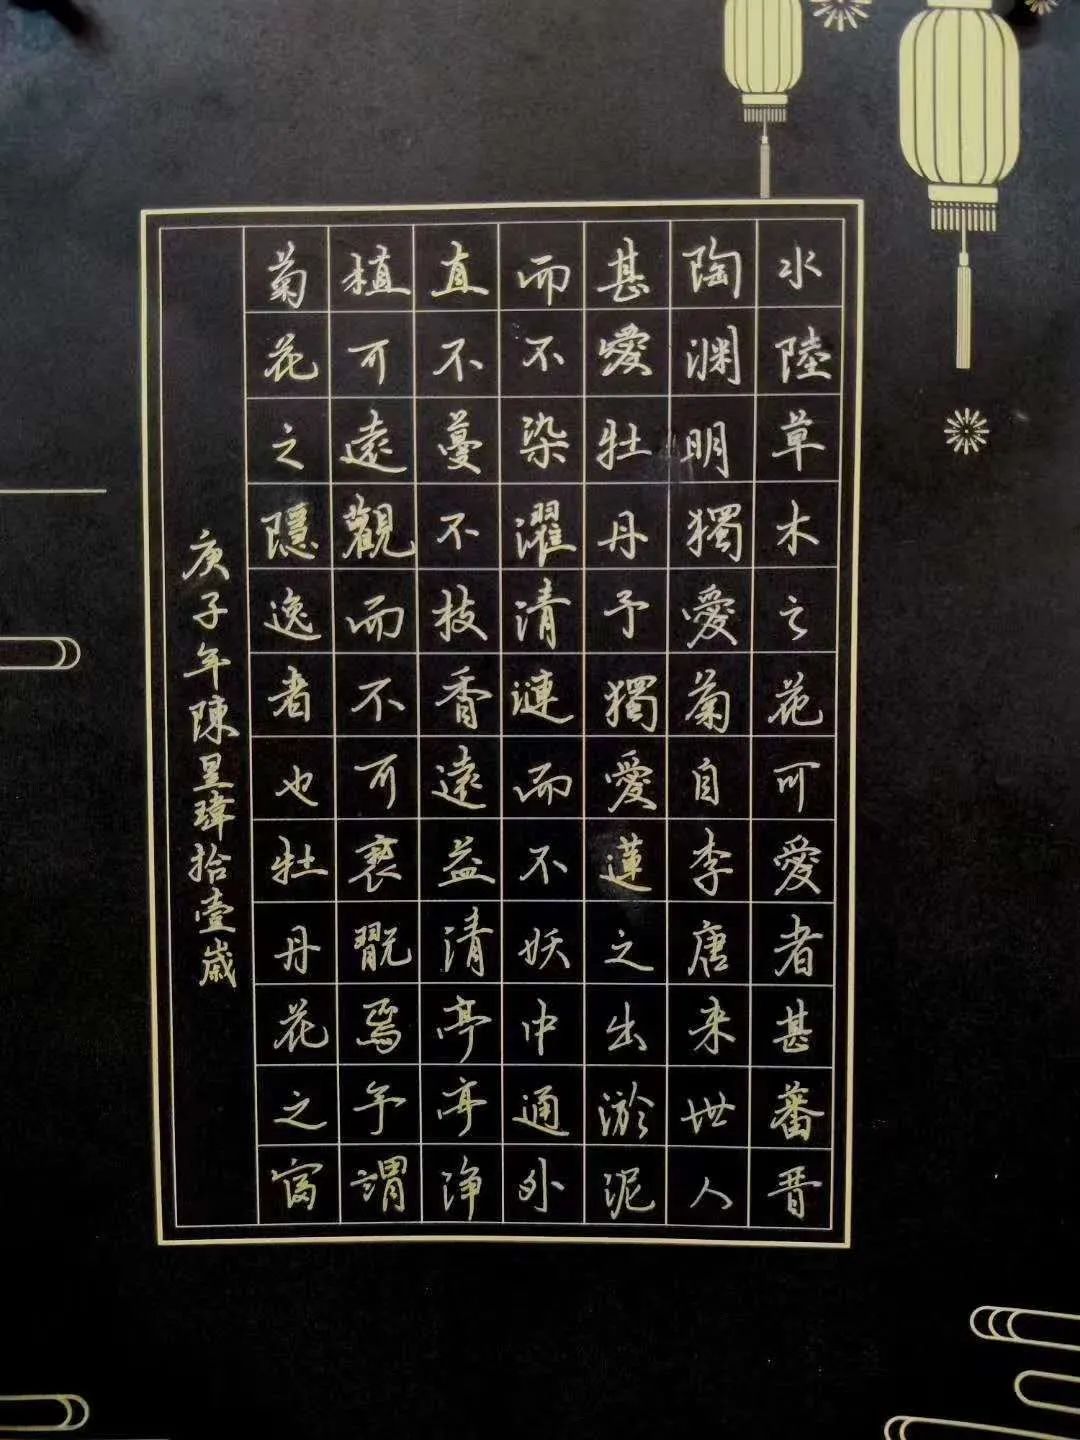 水陸草木之花可愛者甚蕃晋
陶渊明獨愛菊自李唐来世人
甚愛牡丹予獨愛蓮之出淤泥
而不染濯清漣而不妖中通外
直不蔓不枝香遠益清亭亭净
植可遠觀而不可褻翫焉予謂
菊花之隱逸者也牡丹花之富
庚子年陳昱瑋拾壹歲